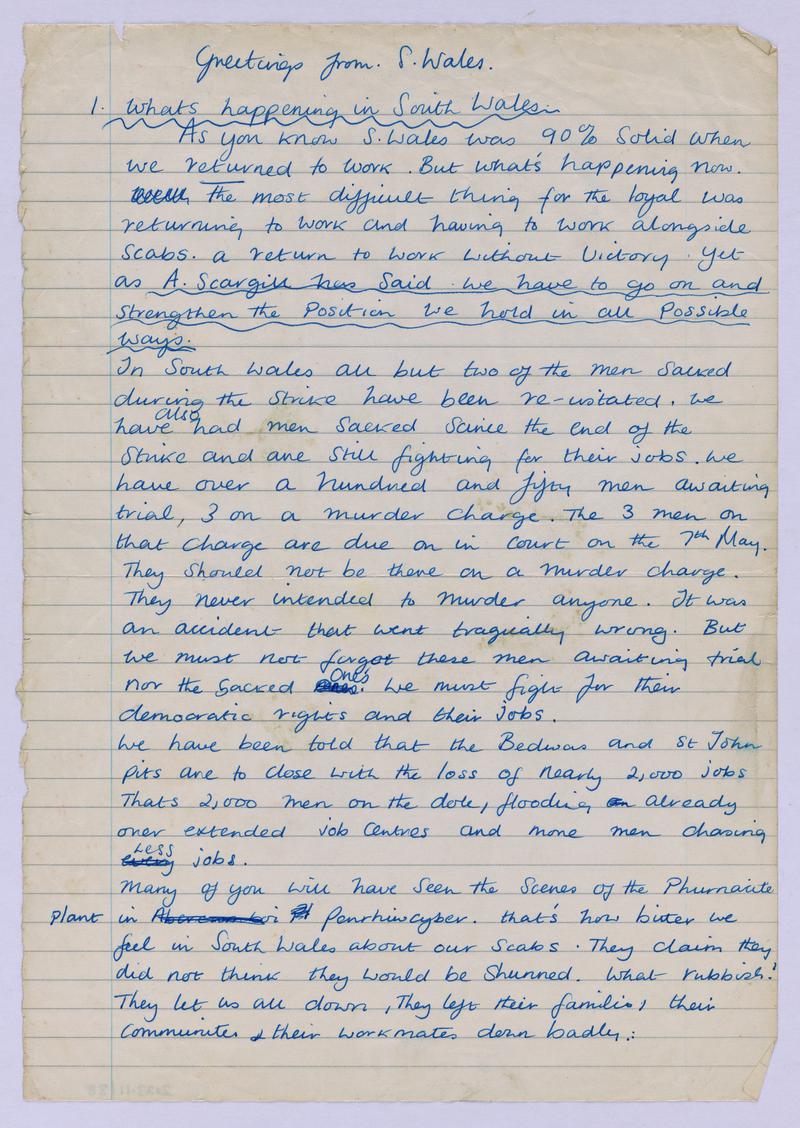 Greetings from. S. Wales.
1. Whats happening in South Wales.
As you know S. Wales was 90% Solid when
we returned to work. But what's happening now.
the most difficult thing for the loyal was
returning to work and having to work alongside
Scabs. a return to work without Victory. Yet
as A. Scargill has Said we have to go on and
Strengthen the Position we hold in all Possible
ways.
In South Wales all but two of the men Sacked
during the Strike have been re-instated. We
have also had men Sacked Saince the end of the
Strike and are Still fighting for their jobs. We
have over a hundred and fifty men awaiting
trial, 3 on a murder charge. The 3 men on
that charge are due on in court on the 7th May.
They Should not be there on a murder charge.
They never intended to murder anyone. It was
an accident that went tragically wrong. But
we must not forgot these men awaiting trial
nor the Sacked one's. We must fight for their
democratic rights and their jobs.
We have been told that the Bedwas and St John
Pits are to close with the loss of nearly 2,000 jobs
Thats 2,000 men on the dole, flooding already
over extended job Centres and more men chasing
Less jobs.
Many of you will have Seen the Scenes of the Phurnacite
Plant in Penrhiwcyber. that's how bitter we
feel in South Wales about our Scabs. They claim they
did not think they would be Shunned. What rubbish!
They let us all down, They left their families, their
Communites & their workmates down badly.: